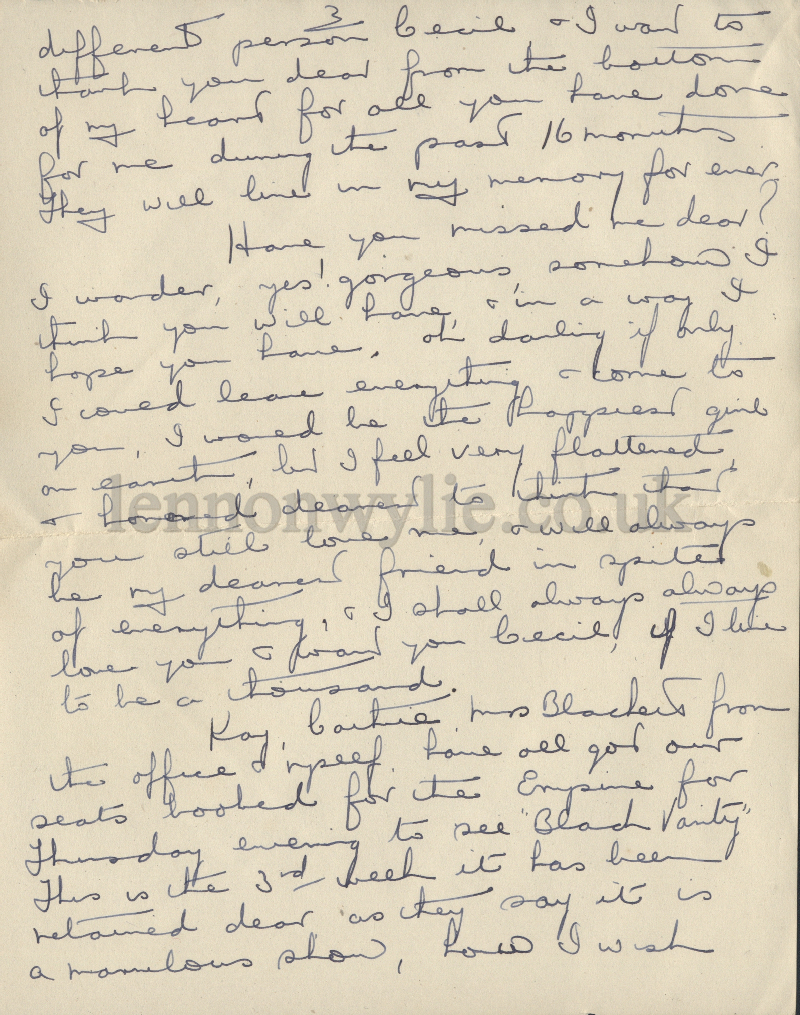 3
different person Cecil, & I want to
thank you dear from the bottom
of my heart for all you have done
for me during the past 16 months
They will live in my memory for ever.
Have you missed me dear?
I wonder, yes! gorgeous, somehow I
think you will have, & in a way I
hope you have. oh, darling if only
I could leave everything & come to
you, I would be the happiest girl
on earth, but I feel very flattered,
& honored dearest to think that
you still love me, & will always
be my dearest friend in spite
of everything, & I shall always always
love you & want you Cecil, if I live
to be a thousand.
Kay, Cathie, Mrs Blackett from
the office & myself have all got our
seats booked for the Empire for
Thursday evening to see "Black Vanity"
This is the 3rd week it has been
retained dear as they say it is
a marvulous show, how I wish
lennonwylie.co.uk